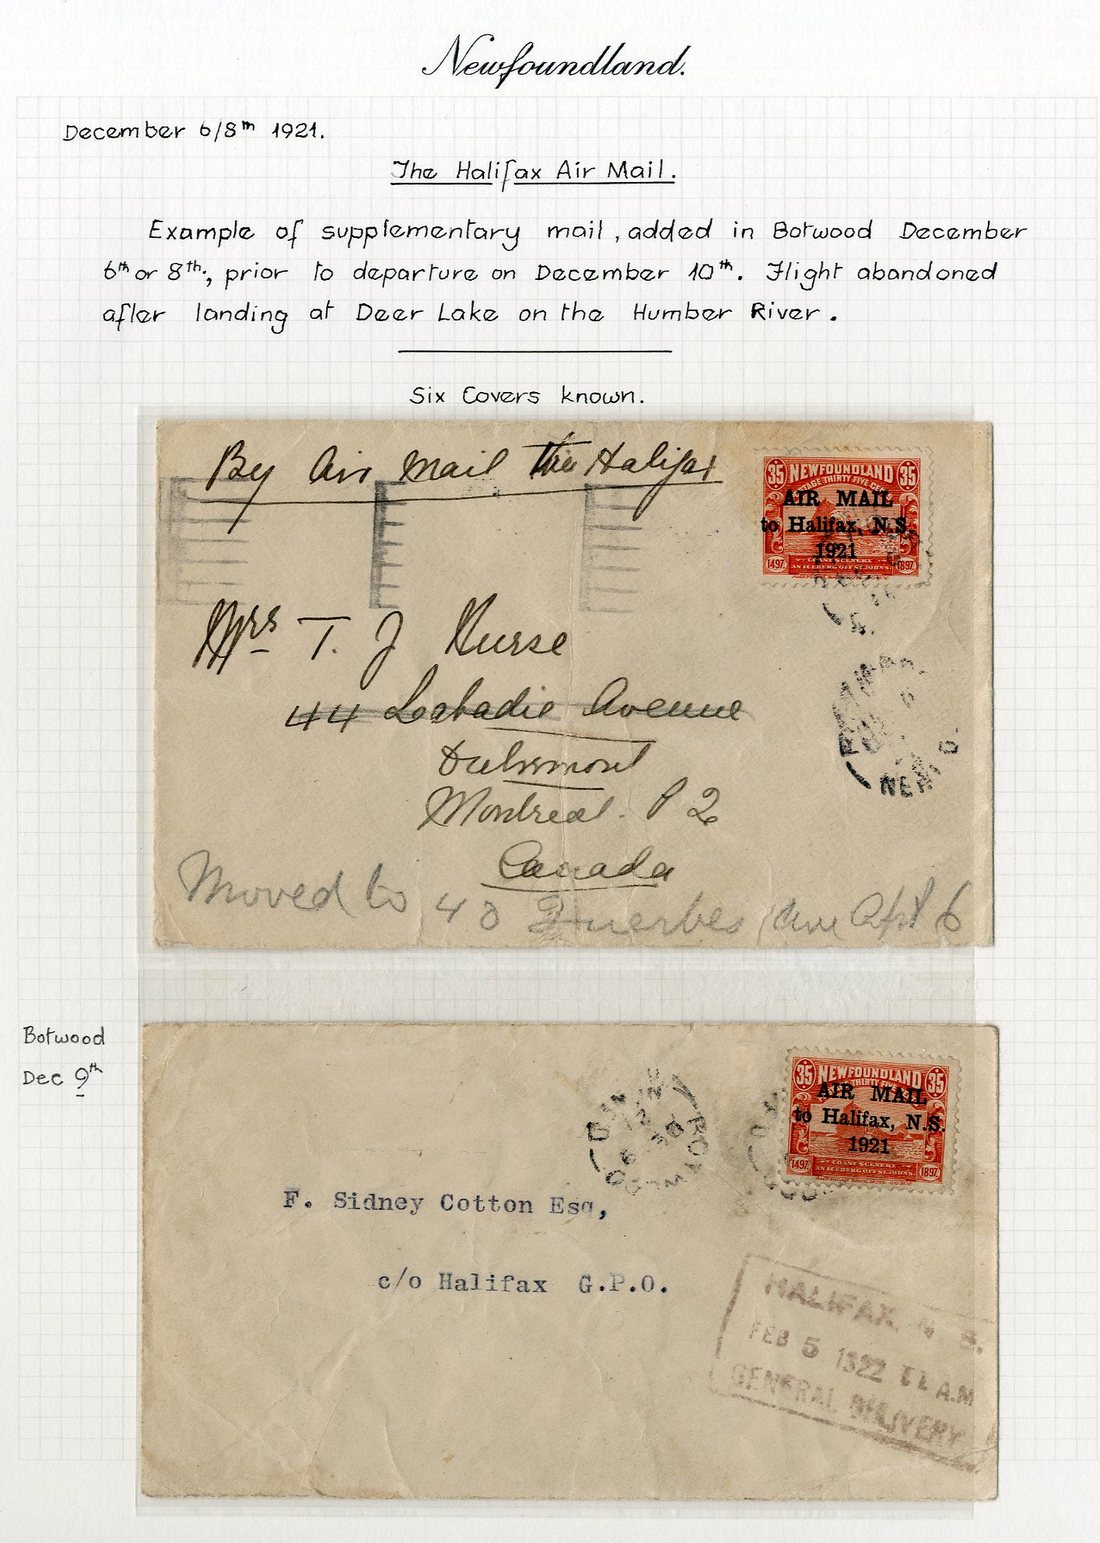 Newfoundland.
December 6/8th 1921.
The Halifax Air Mail.
Example of supplementary mail, added in Botwood December
6th or 8th, prior to departure on December 10th. Flight abandoned
after landing at Deer Lake on the Humber River.
Six Covers known.
By Air Mail Halifax
35 NEWFOUNDLAND 35
POSTAGE THIRTY FIVE CENTS
AIR MAIL
to Halifax, N.S.
1921
1497 COAST SCENERY 1897
AN ICEBERG OFF ST. JOHN'S
Mrs T. J Nurse
44 Labadie Avenue
Montreal. P Q
Canada
NEWF'D.
Moved to 40 Querbes Ave Apt 6
Botwood
Dec 9th
35 NEWFOUNDLAND 35
THIRTY FIVE
AIR MAIL
to Halifax, N.S.
1921
1497 COAST SCENERY 1897
AN ICEBERG OFF ST. JOHN'S
BOTWOOD
F. Sidney Cotton Esq,
c/o Halifax G.P.O.
HALIFAX, N. S.
FEB 5 1922 11 A.M
GENERAL DELIVERY